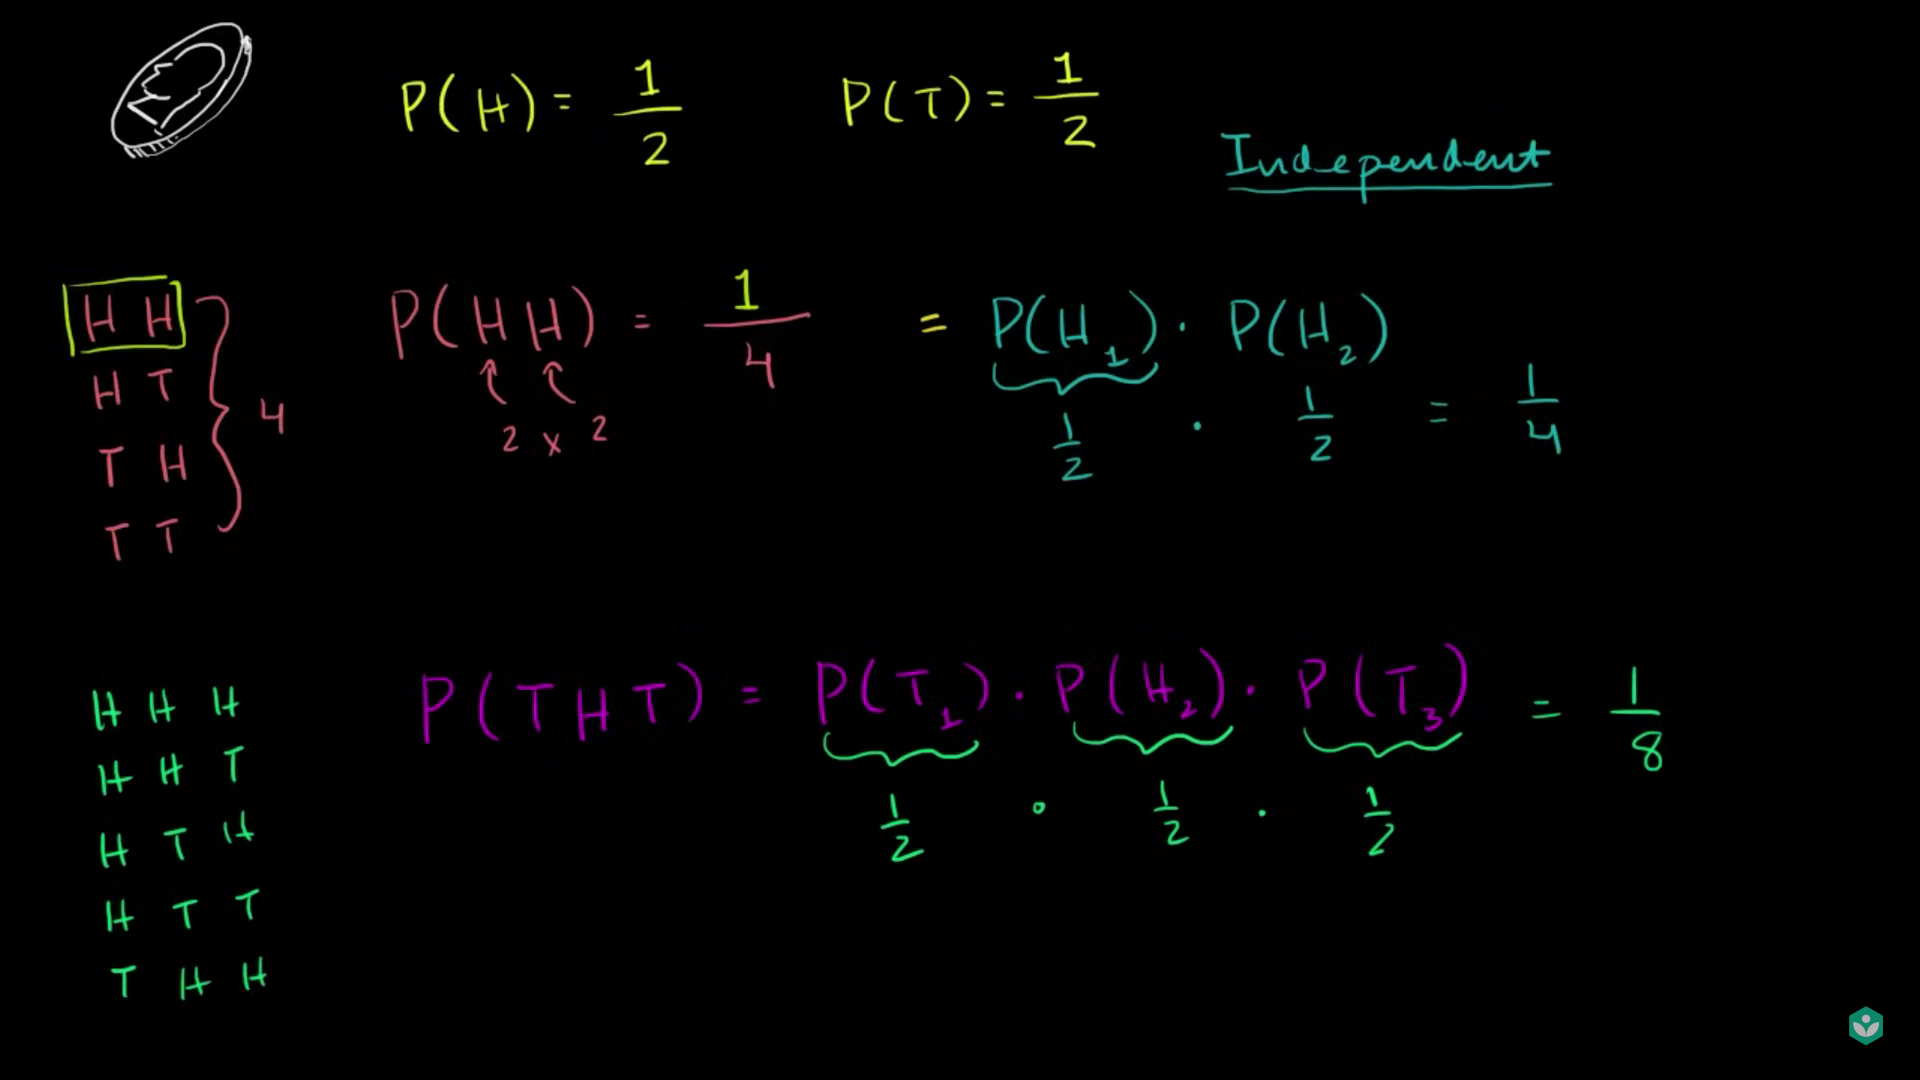 P(H) = 1/2 P(T) = 1/2
Independent
H H
H T
T H
T T
4
P(HH) = 1/4 = P(H₁) · P(H₂)
2 x 2
1/2 · 1/2 = 1/4
H H H
H H T
H T H
H T T
T H H
P(THT) = P(T₁) · P(H₂) · P(T₃) = 1/8
1/2 · 1/2 · 1/2